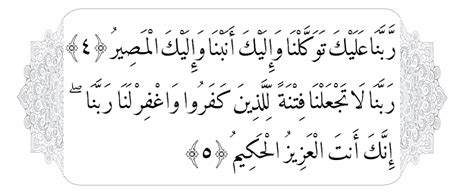 رَّبَّنَا عَلَيْكَ تَوَكَّلْنَا وَإِلَيْكَ أَنَبْنَا وَإِلَيْكَ الْمَصِيرُ ﴿٤﴾
رَبَّنَا لَا تَجْعَلْنَا فِتْنَةً لِّلَّذِينَ كَفَرُوا وَاغْفِرْ لَنَا رَبَّنَا ۖ
إِنَّكَ أَنتَ الْعَزِيزُ الْحَكِيمُ ﴿٥﴾